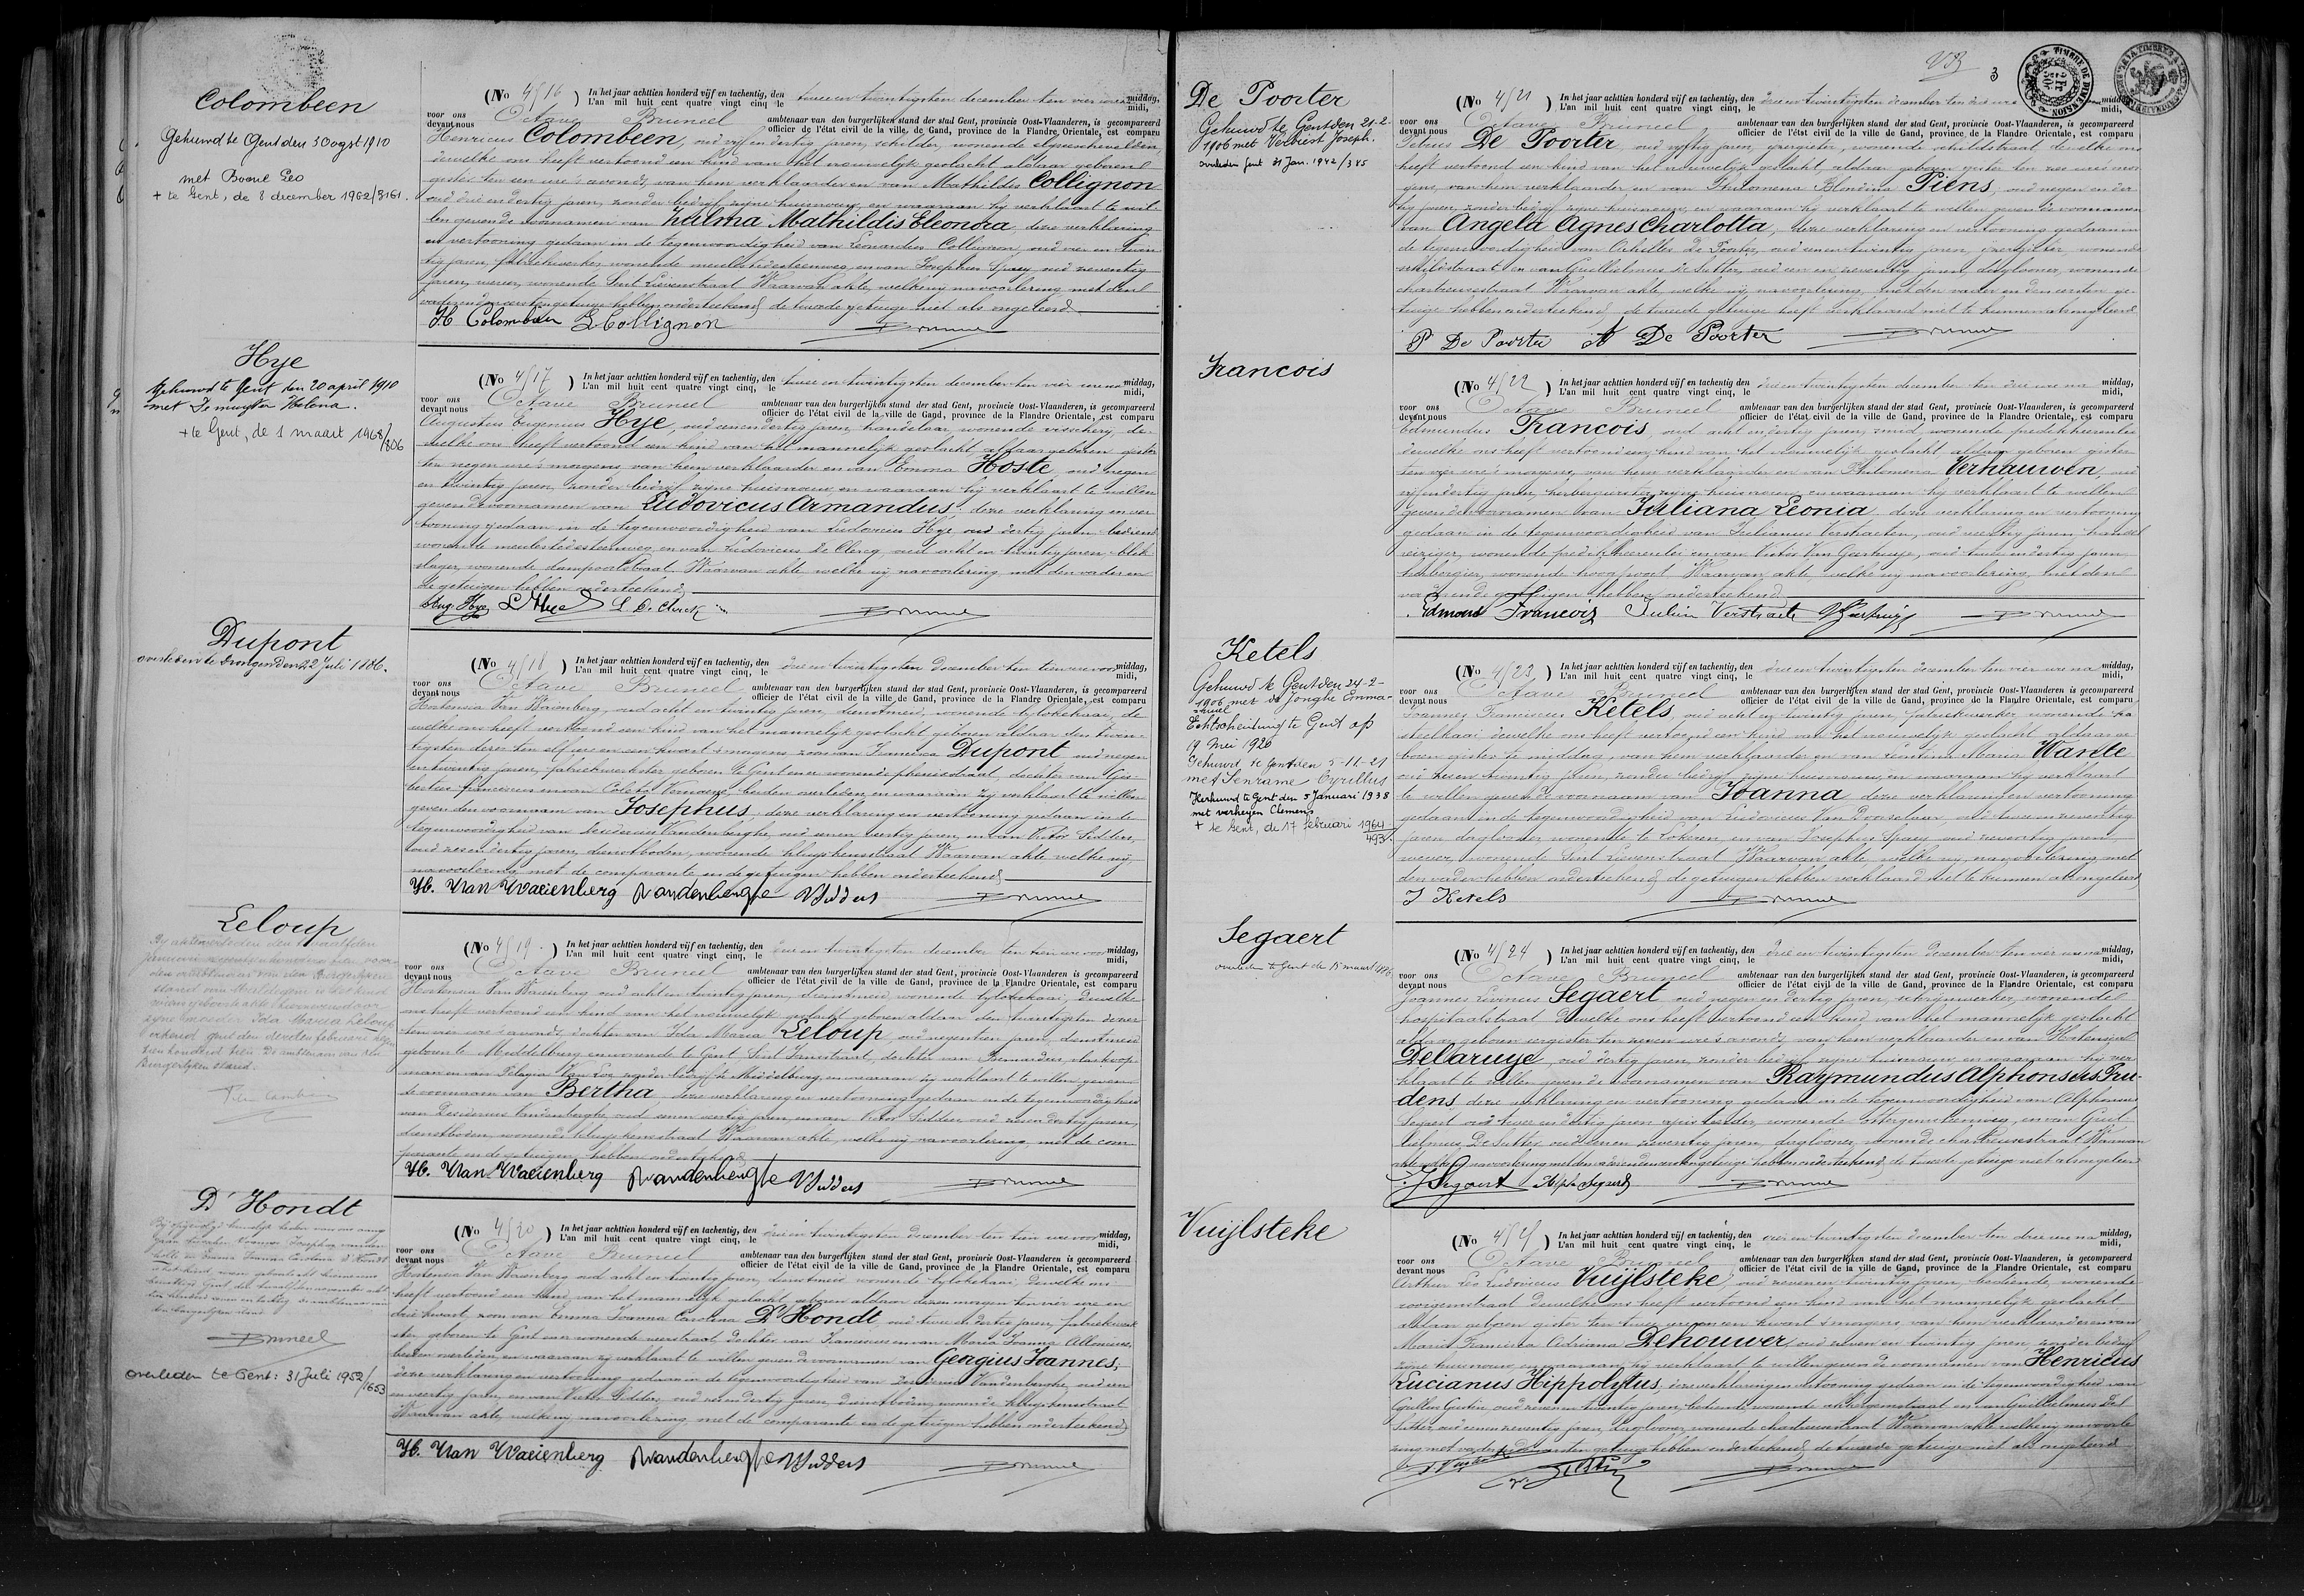 Colombeen
Gehuwd te Gent den 30 ogst 1910
met Boone Leo
+ te Gent, de 8 december 1962/3161.
(No 4516) In het jaar achttien honderd vijf en tachentig, den twee en twintigsten december ten vier ure na middag,
L'an mil huit cent quatre vingt cinq, le midi,
voor ons Octave Bruneel ambtenaar van den burgerlijken stand der stad Gent, provincie Oost-Vlaanderen, is gecompareerd
devant nous officier de l'état civil de la ville de Gand, province de la Flandre Orientale, est comparu
Henricus Colombeen, oud vijf en dertig jaren, schilder, wonende
dewelke ons heeft vertoond een kind van het vrouwelijk geslacht aldaar geboren
gister ten een ure 's avonds, van hem verklaarder en van Mathildis Collignon
oud drie en dertig jaren, zonder bedrijf, zijne huisvrouw, en waaraan hij verklaart te wil-
len geven de voornamen van Zulma Mathildis Eleonora, deze verklaring
en vertooning gedaan in de tegenwoordigheid van Leonardus Collignon, oud vier en twin-
tig jaren, fabriekwerker, wonende meulestedesteenweg, en van Josephus Spaey, oud zeventig
jaren, wever, wonende Sint Lievenstraat. Waarvan akte, welke wij na voorlezing, met den
vader en den eersten getuige hebben onderteekend, de tweede getuige niet als ongeleerd.
H Colombeen L Collignon Bruneel
Hye
Gehuwd te Gent den 20 april 1910
met De muyter Helena.
+ te Gent, de 1 maart 1968/806
(No 4517) In het jaar achttien honderd vijf en tachentig, den twee en twintigsten december ten vier ure na middag,
L'an mil huit cent quatre vingt cinq, le midi,
voor ons Octave Bruneel ambtenaar van den burgerlijken stand der stad Gent, provincie Oost-Vlaanderen, is gecompareerd
devant nous officier de l'état civil de la ville de Gand, province de la Flandre Orientale, est comparu
Augustus Eugenius Hye, oud een en dertig jaren, handelaar, wonende visscherij, de-
welke ons heeft vertoond een kind van het mannelijk geslacht aldaar geboren gister
ten negen ure 's morgens, van hem verklaarder en van Emma Hoste, oud negen
en twintig jaren, zonder bedrijf, zijne huisvrouw, en waaraan hij verklaart te willen
geven de voornamen van Ludovicus Armandus; deze verklaring en ver-
tooning gedaan in de tegenwoordigheid van Ludovicus Hye, oud dertig jaren, bediend
wonende meulestedesteenweg, en van Ludovicus De Clercq, oud acht en twintig jaren, blik-
slager, wonende dampoortstraat. Waarvan akte, welke wij na voorlezing, met den vader en
de getuigen hebben onderteekend.
Aug. Hye L Hye L D. Clerck Bruneel
Dupont
overleden te Drongen den 22 Juli 1886.
(No 4518) In het jaar achttien honderd vijf en tachentig, den drie en twintigsten december ten tien ure voor middag,
L'an mil huit cent quatre vingt cinq, le midi,
voor ons Octave Bruneel ambtenaar van den burgerlijken stand der stad Gent, provincie Oost-Vlaanderen, is gecompareerd
devant nous officier de l'état civil de la ville de Gand, province de la Flandre Orientale, est comparu
Hortensia Van Waeienberg, oud acht en twintig jaren, dienstmeid, wonende bylokekaai, de-
welke ons heeft vertoond een kind van het mannelijk geslacht geboren aldaar den twin-
tigsten dezer ten elf ure en een kwart 's morgens, zoon van Francisca Dupont, oud negen
en twintig jaren, fabriekwerkster, geboren te Gent en er wonende phenixstraat, dochter van Gis-
bertus franciscus en van Coleta Vernoese, beiden overleden, en waaraan zij verklaart te willen
geven den voornaam van Josephus, deze verklaring en vertooning gedaan in de
tegenwoordigheid van Desiderius Vandenberghe, oud een en veertig jaren, en van Victor Sidders,
oud zes en dertig jaren, dienstboden, wonende kluyskensstraat. Waarvan akte welke wij,
na voorlezing, met de comparante en de getuigen hebben onderteekend.
H. Van Waeienberg Dvandenberghe VSidders Bruneel
Leloup
(No 4519.) In het jaar achttien honderd vijf en tachentig, den drie en twintigsten december ten tien ure voor middag,
L'an mil huit cent quatre vingt cinq, le midi,
voor ons Octave Bruneel ambtenaar van den burgerlijken stand der stad Gent, provincie Oost-Vlaanderen, is gecompareerd
devant nous officier de l'état civil de la ville de Gand, province de la Flandre Orientale, est comparu
Hortensia Van Waeienberg, oud acht en twintig jaren, dienstmeid, wonende bylokekaai, dewelke
ons heeft vertoond een kind van het vrouwelijk geslacht geboren aldaar den twintigsten dezer
ten vier ure 's avonds, dochter van Ida Maria Leloup, oud negentien jaren, dienstmeid
geboren te Middelburg en wonende te Gent Sint Jansstraat, dochter van Bernardus, vlaskoop-
man en van Pelagia Van Loo, zonder bedrijf, te Middelburg, en waaraan zij verklaart te willen geven
de voornaam van Bertha, deze verklaring en vertooning gedaan in de tegenwoordigheid
van Desiderius Vandenberghe, oud een en veertig jaren, en van Victor Sidders, oud zes en dertig jaren,
dienstboden, wonende kluyskensstraat. Waarvan akte, welke wij na voorlezing, met de com-
parante en de getuigen hebben onderteekend.
H. Van Waeienberg Dvandenberghe VSidders Bruneel
D'Hondt
Bruneel
overleden te Gent: 31 Juli 1952/1653
(No 4520) In het jaar achttien honderd vijf en tachentig, den drie en twintigsten december ten tien ure voor middag,
L'an mil huit cent quatre vingt cinq, le midi,
voor ons Octave Bruneel ambtenaar van den burgerlijken stand der stad Gent, provincie Oost-Vlaanderen, is gecompareerd
devant nous officier de l'état civil de la ville de Gand, province de la Flandre Orientale, est comparu
Hortensia Van Waeienberg, oud acht en twintig jaren, dienstmeid, wonende bylokekaai, dewelke ons
heeft vertoond een kind van het mannelijk geslacht geboren aldaar dezen morgen ten vier ure en
drie kwart, zoon van Emma Joanna Carolina D'Hondt, oud twee en dertig jaren, fabriekwerk-
ster, geboren te Gent en er wonende veerstraat, dochter van Franciscus en van Maria Joanna
beiden overleden, en waaraan zij verklaart te willen geven de voornamen van Georgius Joannes;
deze verklaring en vertooning gedaan in de tegenwoordigheid van Desiderius Vandenberghe, oud een
en veertig jaren, en van Victor Sidders, oud zes en dertig jaren, dienstboden, wonende kluyskensstraat
Waarvan akte, welke wij na voorlezing, met de comparante en de getuigen hebben onderteekend.
H. Van Waeienberg Dvandenberghe VSidders Bruneel
3
TIMBRE DE DIMENSION
De Poorter
Gehuwd te Gent den 21-2-
1906 met Verbiest Joseph.
overleden Gent 31 Jan. 1942/345
(No 4521) In het jaar achttien honderd vijf en tachentig, den drie en twintigsten december ten drie ure na middag,
L'an mil huit cent quatre vingt cinq, le midi,
voor ons Octave Bruneel ambtenaar van den burgerlijken stand der stad Gent, provincie Oost-Vlaanderen, is gecompareerd
devant nous officier de l'état civil de la ville de Gand, province de la Flandre Orientale, est comparu
Petrus De Poorter, oud vijftig jaren, ijzergieter, wonende schildstraat, dewelke ons
heeft vertoond een kind van het vrouwelijk geslacht, aldaar geboren gister ten zes ure 's mor-
gens, van hem verklaarder en van Philomena Blondina Piens, oud negen en der-
tig jaren, zonder bedrijf, zijne huisvrouw, en waaraan hij verklaart te willen geven de voornamen
van Angela Agnes Charlotta, deze verklaring en vertooning gedaan in
de tegenwoordigheid van Achilles De Poorter, oud een en twintig jaren, ijzergieter, wonende
schildstraat en van Guillielmus De Sutter, oud een en zeventig jaren, daglooner, wonende
chartreusestraat. Waarvan akte, welke wij na voorlezing, met den vader en den eersten ge-
tuige hebben onderteekend, de tweede getuige heeft verklaard niet te kunnen als ongeleerd
P De Poorter A De Poorter Bruneel
Francois
(No 4522) In het jaar achttien honderd vijf en tachentig, den drie en twintigsten december ten drie ure na middag,
L'an mil huit cent quatre vingt cinq, le midi,
voor ons Octave Bruneel ambtenaar van den burgerlijken stand der stad Gent, provincie Oost-Vlaanderen, is gecompareerd
devant nous officier de l'état civil de la ville de Gand, province de la Flandre Orientale, est comparu
Edmundus Francois, oud acht en dertig jaren, smid, wonende predikheerenlei
dewelke ons heeft vertoond een kind van het vrouwelijk geslacht aldaar geboren gister
ten vier ure 's morgens, van hem verklaarder en van Philomena Verhauwen, oud
vijf en dertig jaren, herbergierster, zijne huisvrouw, en waaraan hij verklaart te willen
geven de voornamen van Juliana Leonia, deze verklaring en vertooning
gedaan in de tegenwoordigheid van Julianus Verstraeten, oud veertig jaren, handel-
reiziger, wonende predikheerenlei en van Victor Van Gaeshuyse, oud twee en dertig jaren
herbergier, wonende hoogpoort. Waarvan akte, welke wij na voorlezing, met den
vader en de getuigen hebben onderteekend.
Edmond Francois Julien Verstraete Bruneel
Ketels
Gehuwd te Gent den 24-2-
1906 met de Jonghe Emma-
nuel
Echtscheiding te Gent op
19 Mei 1920
Gehuwd te Gent den 5-11-21
met Senrame Cyrillus
Herhuwd te Gent den 5 Januari 1938
met verheyen Clemens
+ te Gent, de 17 februari 1964/493.
(No 4523) In het jaar achttien honderd vijf en tachentig, den drie en twintigsten december ten vier ure na middag,
L'an mil huit cent quatre vingt cinq, le midi,
voor ons Octave Bruneel ambtenaar van den burgerlijken stand der stad Gent, provincie Oost-Vlaanderen, is gecompareerd
devant nous officier de l'état civil de la ville de Gand, province de la Flandre Orientale, est comparu
Joannes Franciscus Ketels, oud acht en twintig jaren, fabriekwerker, wonende ka-
steelkaai, dewelke ons heeft vertoond een kind van het vrouwelijk geslacht aldaar ge-
boren gister te middag, van hem verklaarder en van Leontina Maria Wante
oud zes en twintig jaren, zonder bedrijf, zijne huisvrouw, en waaraan hij verklaart
te willen geven de voornaam van Joanna, deze verklaring en vertooning
gedaan in de tegenwoordigheid van Ludovicus Van Doorselaer, oud twee en zeventig
jaren, daglooner, wonende te Lokeren, en van Josephus Spaey, oud zeventig jaren
wever, wonende Sint Lievenstraat. Waarvan akte, welke wij, na voorlezing, met
den vader hebben onderteekend, de getuigen hebben verklaard niet te kunnen als ongeleerd
J Ketels Bruneel
Segaert
overleden te Gent de 15 maart 1886
(No 4524) In het jaar achttien honderd vijf en tachentig, den drie en twintigsten december ten vier ure na middag,
L'an mil huit cent quatre vingt cinq, le midi,
voor ons Octave Bruneel ambtenaar van den burgerlijken stand der stad Gent, provincie Oost-Vlaanderen, is gecompareerd
devant nous officier de l'état civil de la ville de Gand, province de la Flandre Orientale, est comparu
Joannes Livinus Segaert, oud negen en dertig jaren, schrijnwerker, wonende
hospitaalstraat, dewelke ons heeft vertoond een kind van het mannelijk geslacht
aldaar geboren eergister ten zeven ure 's avonds, van hem verklaarder en van Hortensia
Delaruye, oud dertig jaren, zonder bedrijf, zijne huisvrouw, en waaraan hij ver-
klaart te willen geven de voornamen van Raymundus Alphonsus Pru-
dens, deze verklaring en vertooning gedaan in de tegenwoordigheid van Alphonsus
Segaert, oud twee en dertig jaren, wonende Ottergemsteenweg, en van Guil-
lielmus De Sutter, oud een en zeventig jaren, daglooner, wonende chartreusestraat. Waarvan
akte, welke wij na voorlezing met den vader en den eersten getuige hebben onderteekend, de tweede getuige niet als ongeleerd
J Segaert Alph Segaert Bruneel
Vuijlsteke
(No 4525) In het jaar achttien honderd vijf en tachentig, den drie en twintigsten december ten drie ure na middag,
L'an mil huit cent quatre vingt cinq, le midi,
voor ons Octave Bruneel ambtenaar van den burgerlijken stand der stad Gent, provincie Oost-Vlaanderen, is gecompareerd
devant nous officier de l'état civil de la ville de Gand, province de la Flandre Orientale, est comparu
Arthur Leo Ludovicus Vuijlsteke, oud zeven en twintig jaren, bediende, wonende
rooigemstraat, dewelke ons heeft vertoond een kind van het mannelijk geslacht
aldaar geboren gister ten twee ure en een kwart 's morgens, van hem verklaarder en van
Maria Francisca Adriana Dehouwer, oud zeven en twintig jaren, zonder bedrijf
zijne huisvrouw, en waaraan hij verklaart te willen geven de voornamen van Henricus
Lucianus Hippolytus, deze verklaring en vertooning gedaan in de tegenwoordigheid van
oud zeven en twintig jaren, bediende, wonende en van Guillielmus De
Sutter, oud een en zeventig jaren, daglooner, wonende chartreusestraat. Waarvan akte, welke wij na voorle-
zing met vader en den eersten getuige hebben onderteekend, de tweede getuige niet als ongeleerd
Bruneel